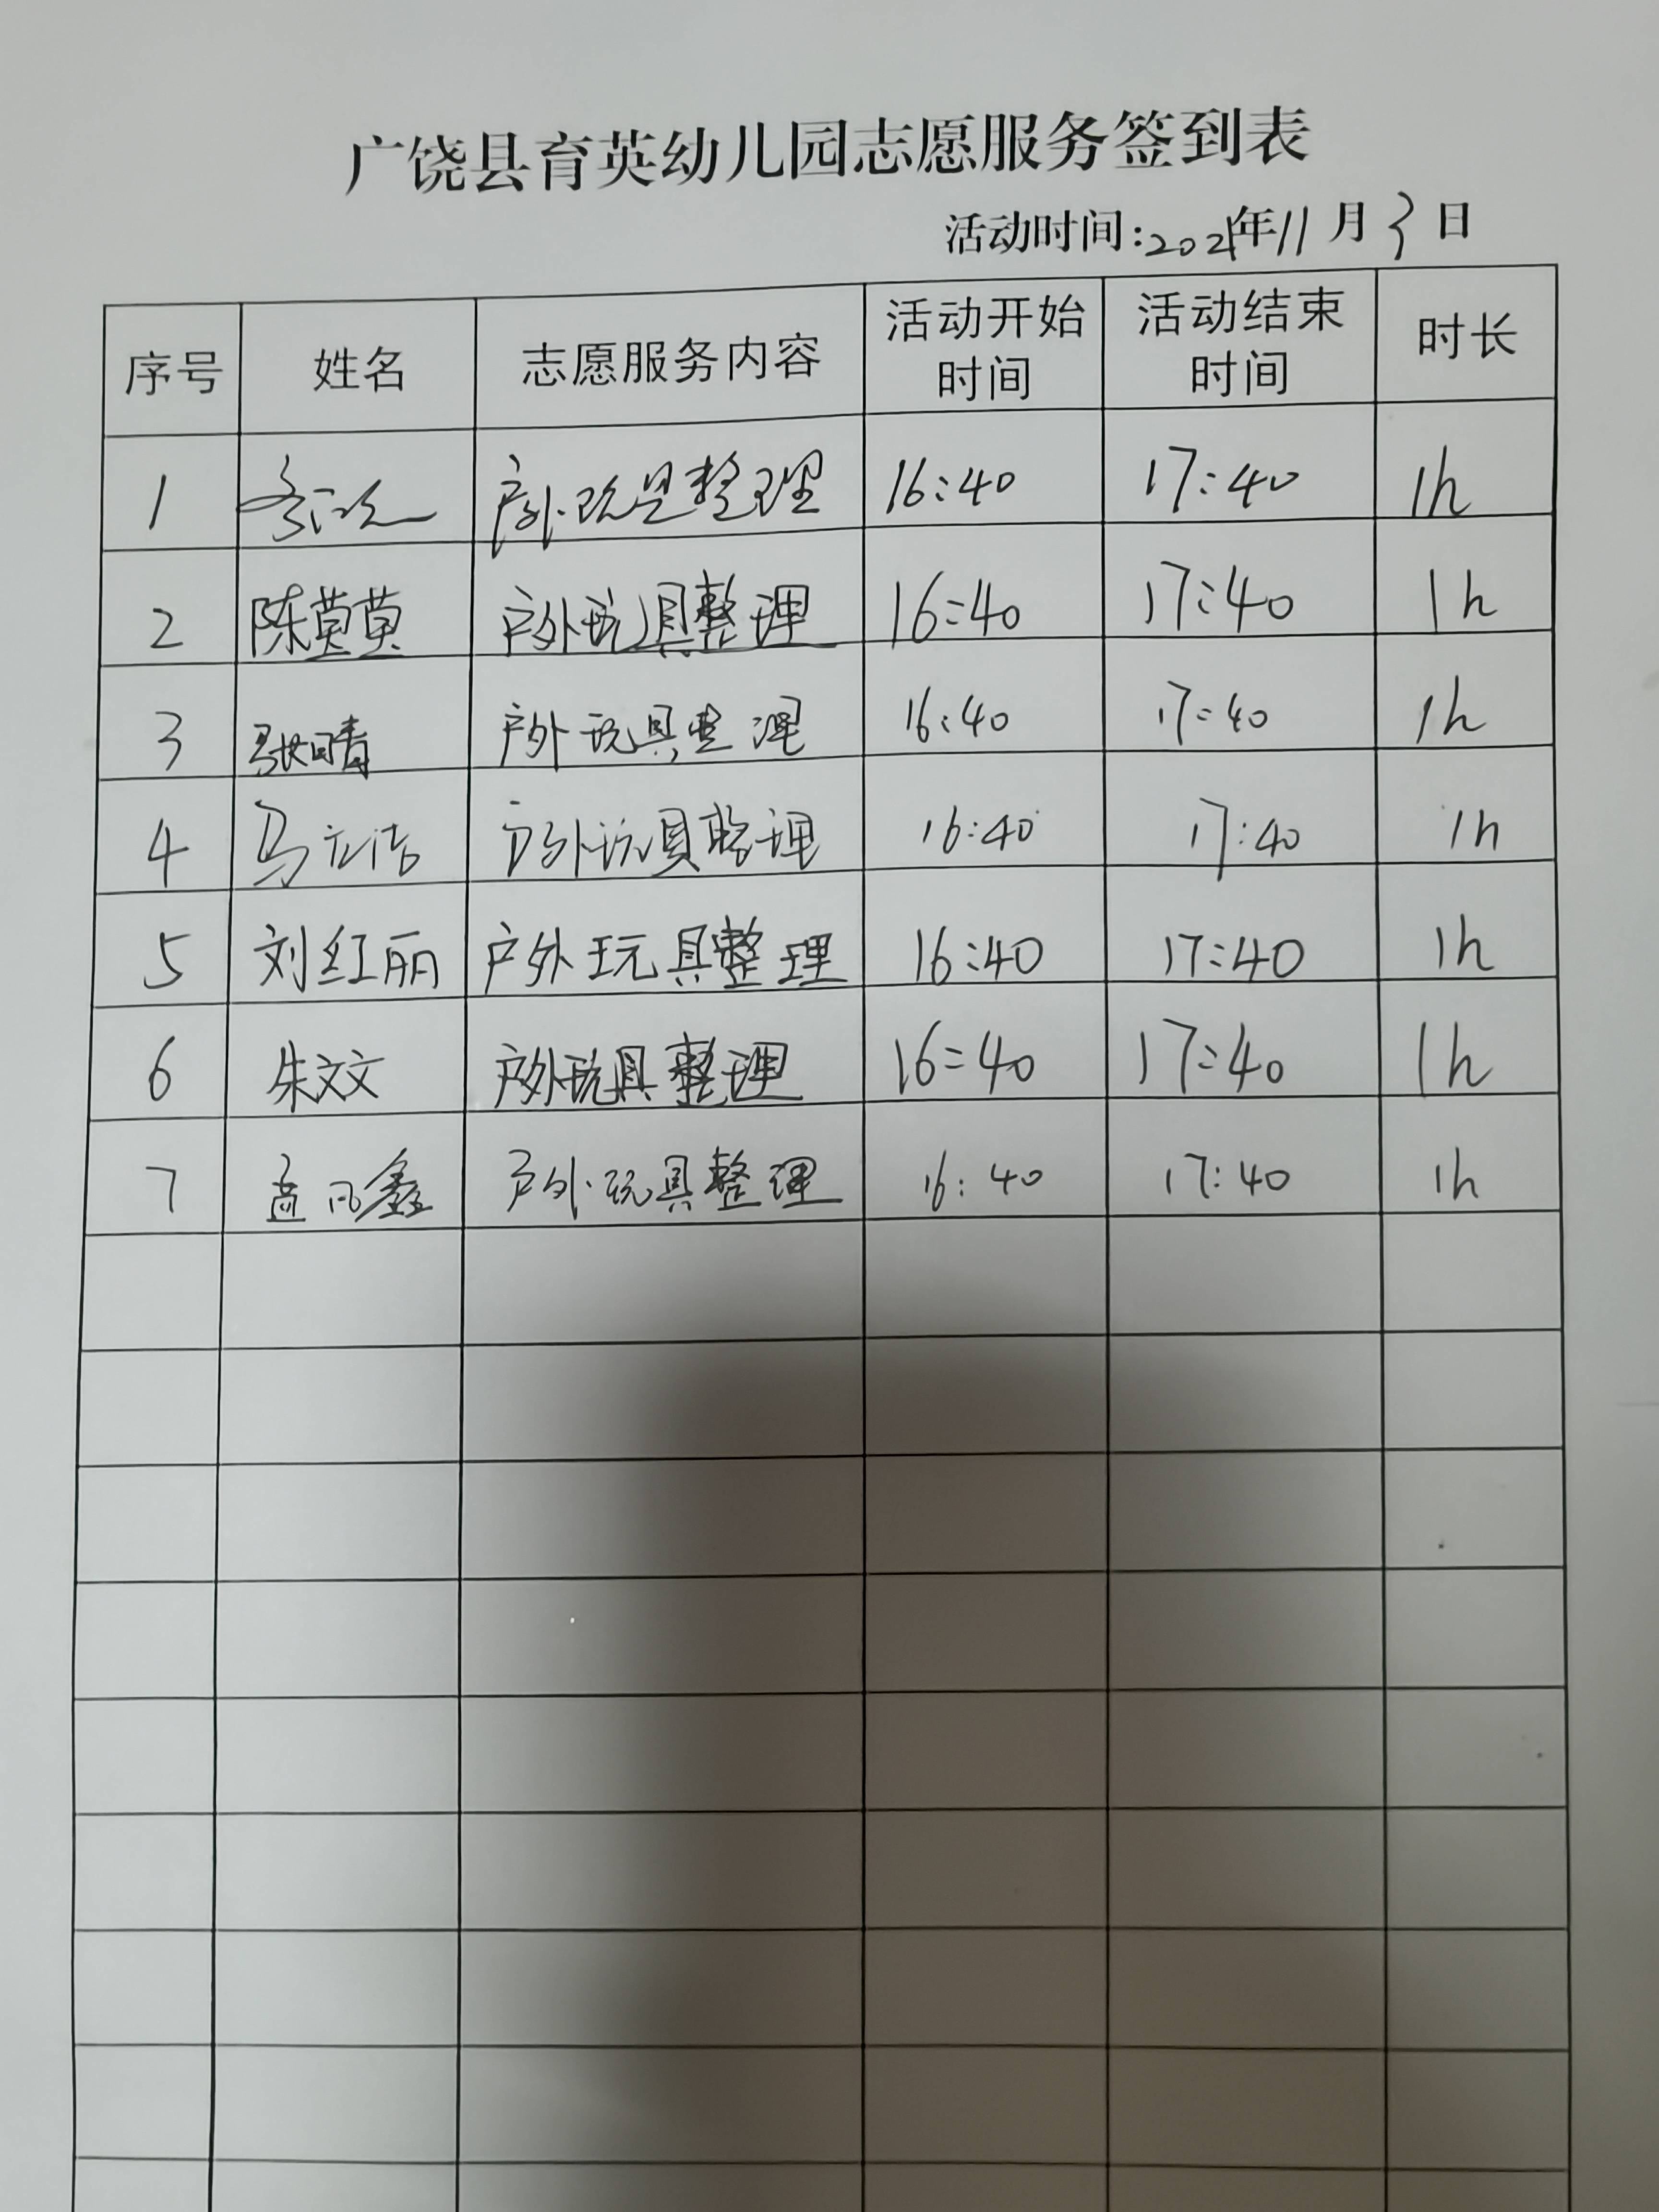 广饶县育英幼儿园志愿服务签到表
活动时间:2021年11月3日
序号 姓名 志愿服务内容 活动开始时间 活动结束时间 时长
1 户外玩具整理 16:40 17:40 1h
2 陈萸萸 户外玩具整理 16:40 17:40 1h
3 张晴 户外玩具整理 16:40 17:40 1h
4 马 户外玩具整理 16:40 17:40 1h
5 刘红丽 户外玩具整理 16:40 17:40 1h
6 朱文文 户外玩具整理 16:40 17:40 1h
7 孟凡鑫 户外玩具整理 16:40 17:40 1h